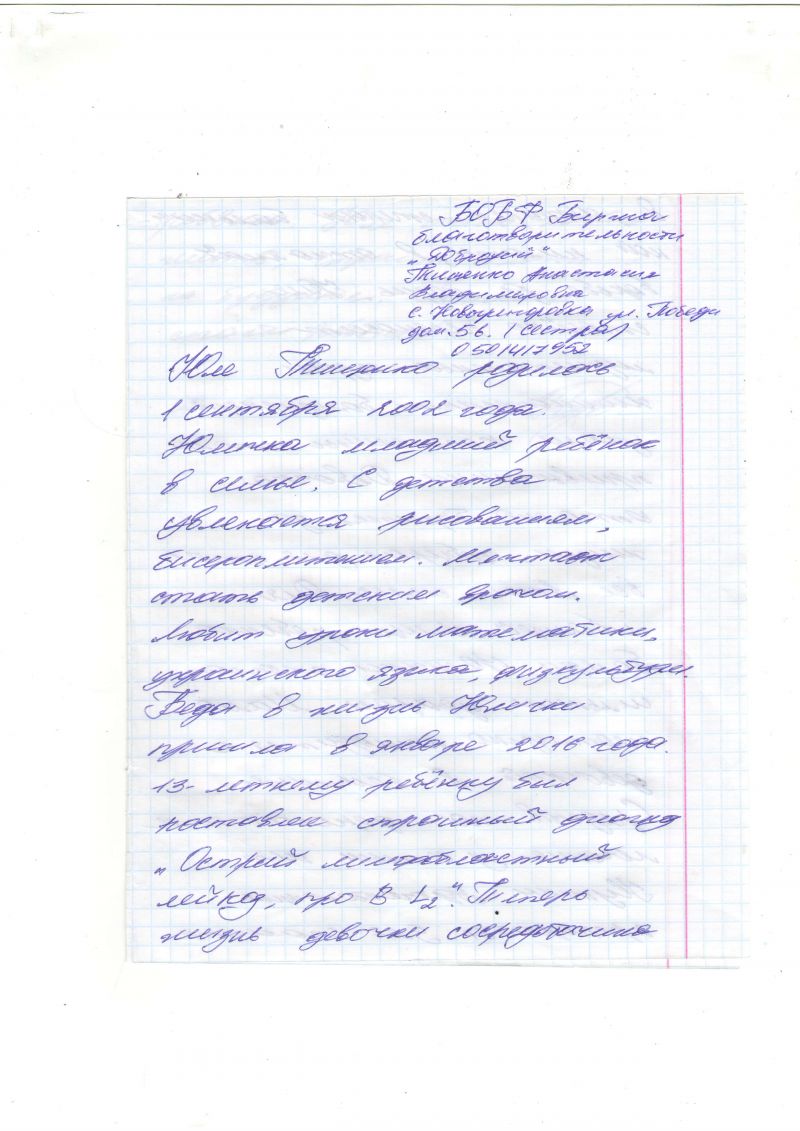 БОБФ Биржа
благотворительности
„Добродий"
Тищенко Анастасия
Владимировна
с. Новогригоровка ул. Победи
дом. 56. (сестра)
0501417952
Юле Тищенко родилась
1 сентября 2002 года.
Юличка младший ребёнок
в семье. С детства
увлекается рисованием,
бисероплитением. Мечтает
стать детским врачом.
Любит уроки математики,
украинского языка, физкультури.
Беда в жизнь Юлички
пришла в январе 2016 года.
13-летнему ребёнку был
поставлен страшный диагноз
„Острый лимфобластный
лейкоз, про В L2". Типерь
жизнь девочки сосредоточина